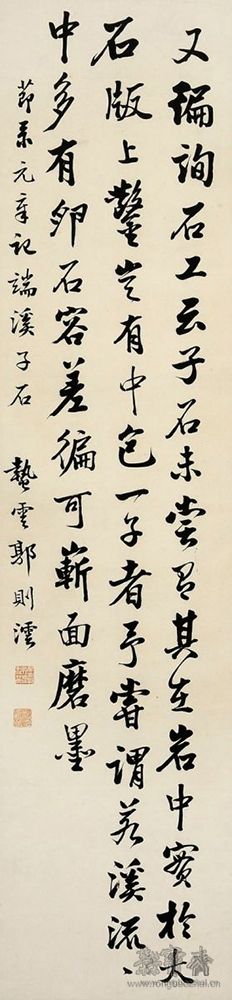 又徧詢石工云子石未嘗有其在岩中實於大
石版上鑿豈有中包一子者予嘗謂若溪流、
中多有卵石容差徧可嶄面磨墨
節米元章記端溪子石 蟄雲郭則澐
www.rongbaozhai.cn